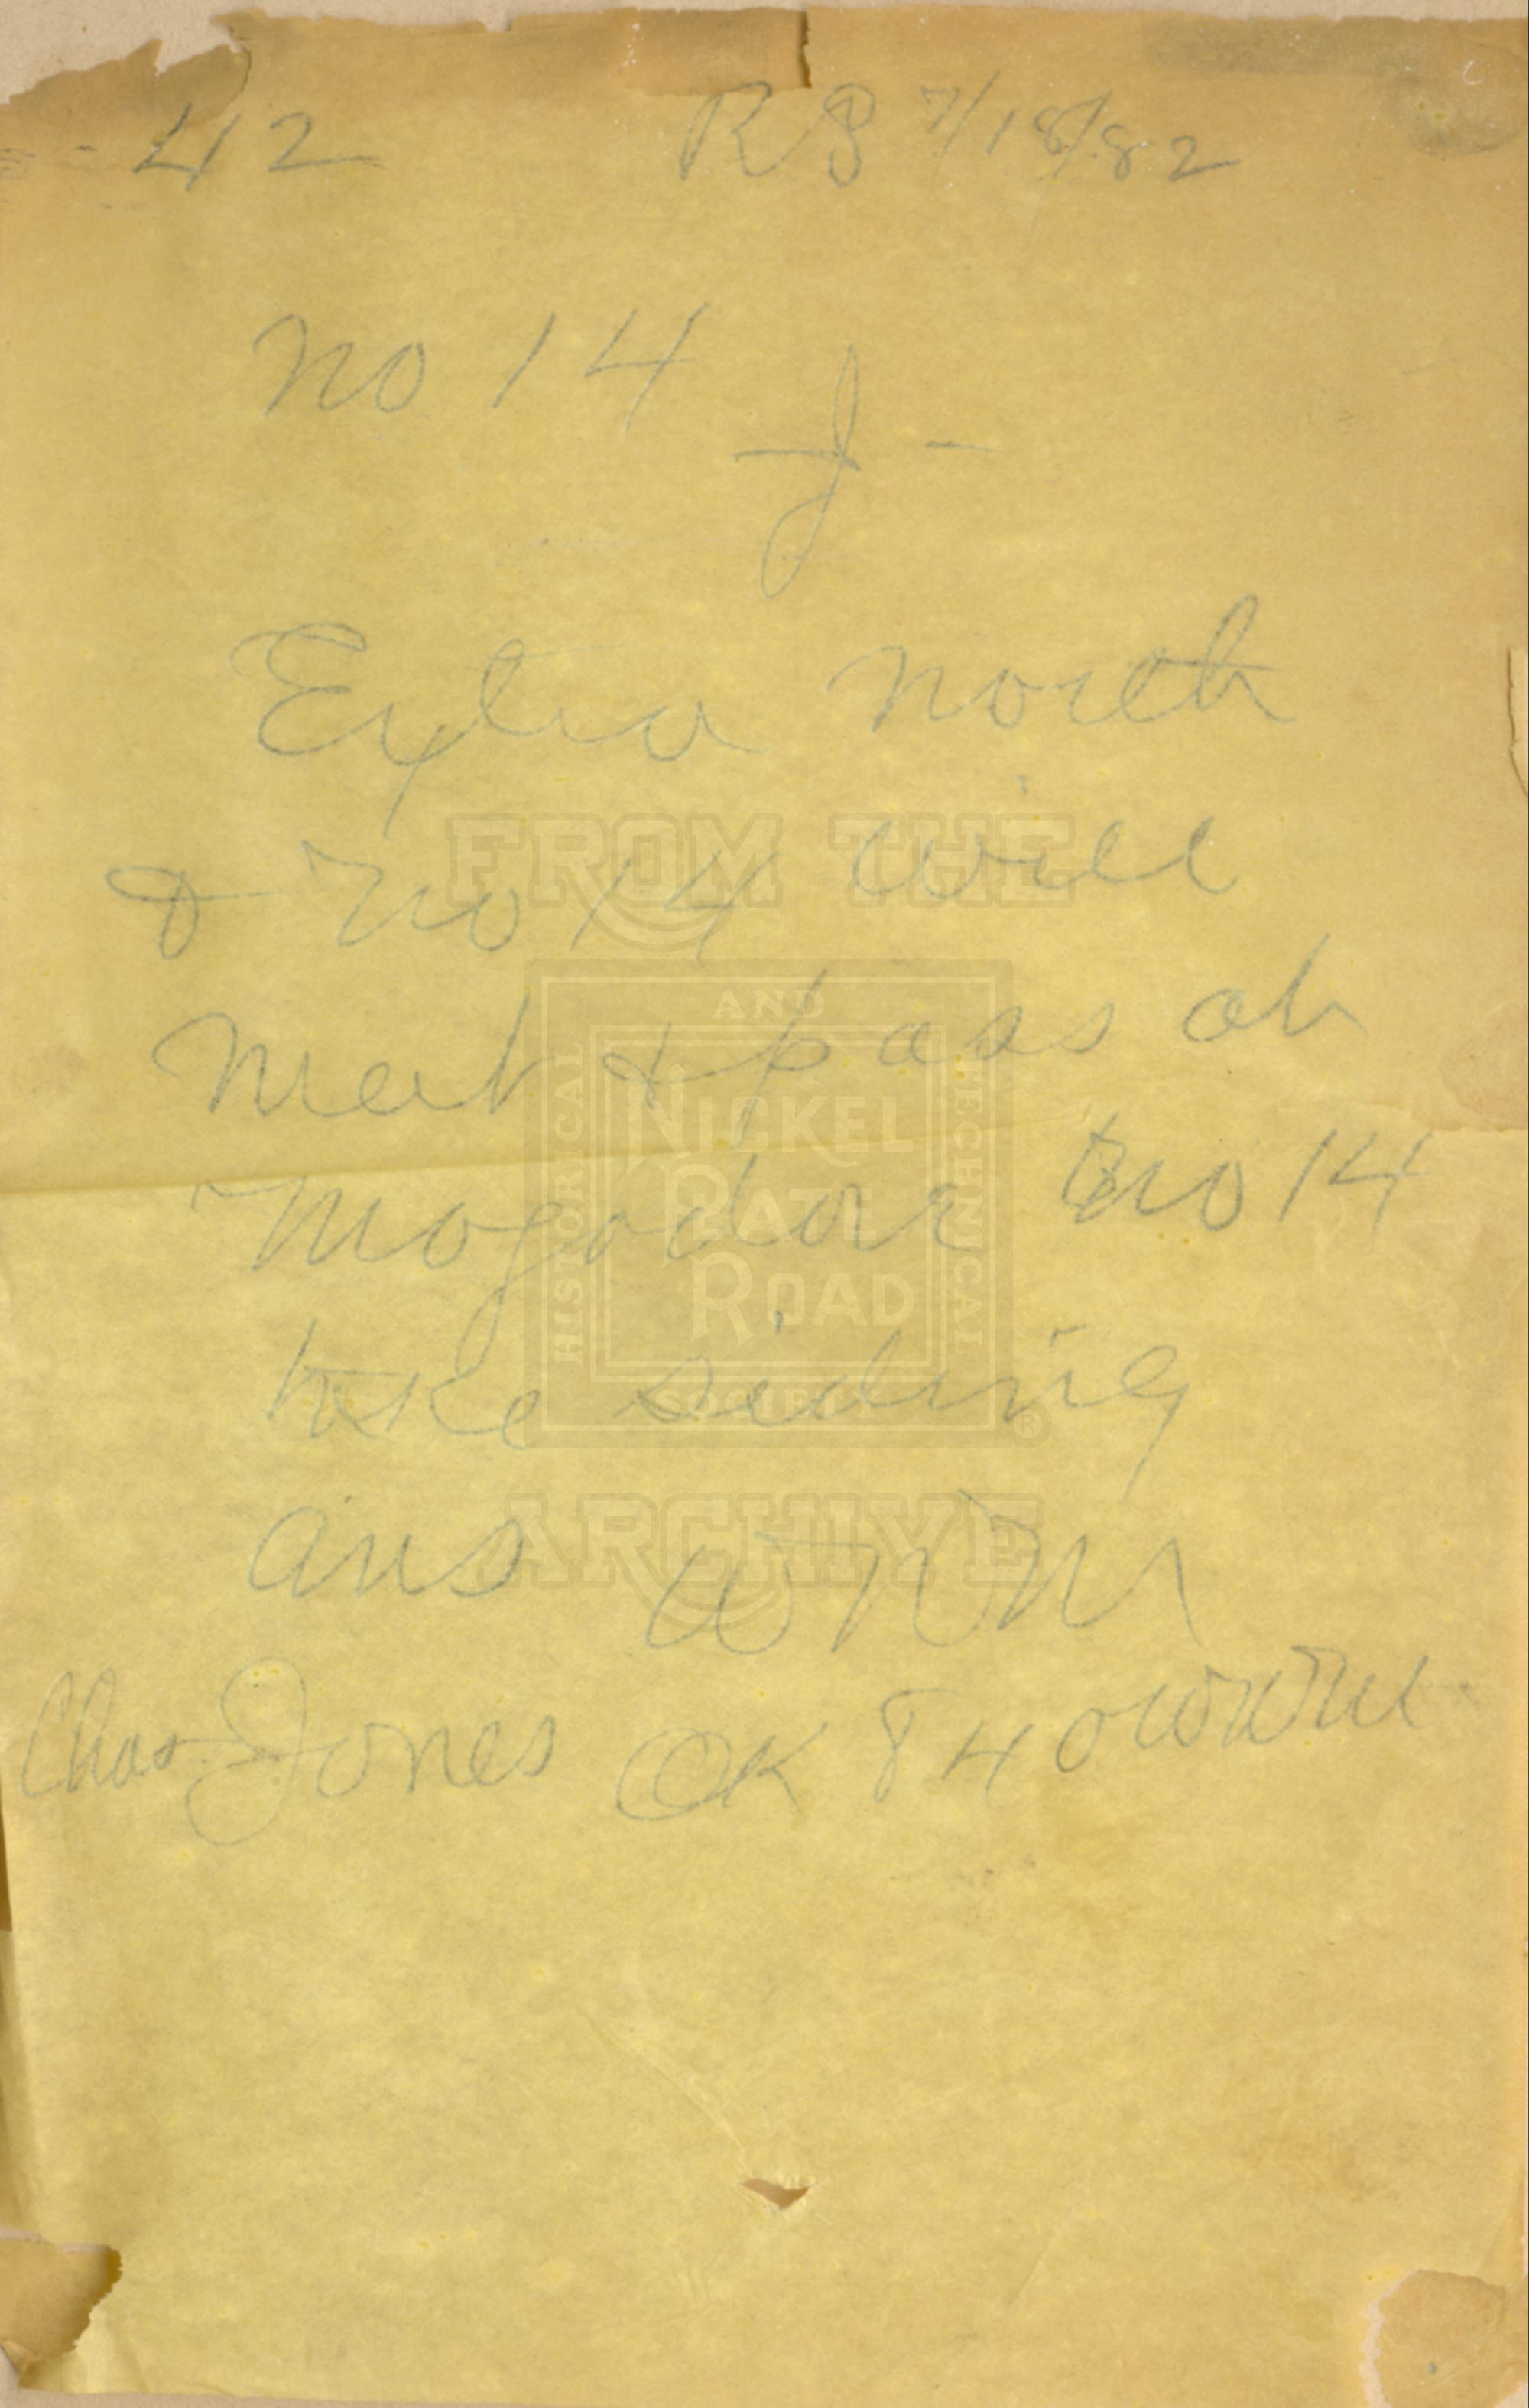 42 RS 7/18/82
No 14
J -
Extra north
& No 14 will
FROM THE
Meet & pass at
AND
Mogadore No 14
HISTORICAL
NICKEL
PLATE
ROAD
TECHNICAL
take siding
SOCIETY ®
ans WRM
ARCHIVE
Chas Jones OK 840 WRM